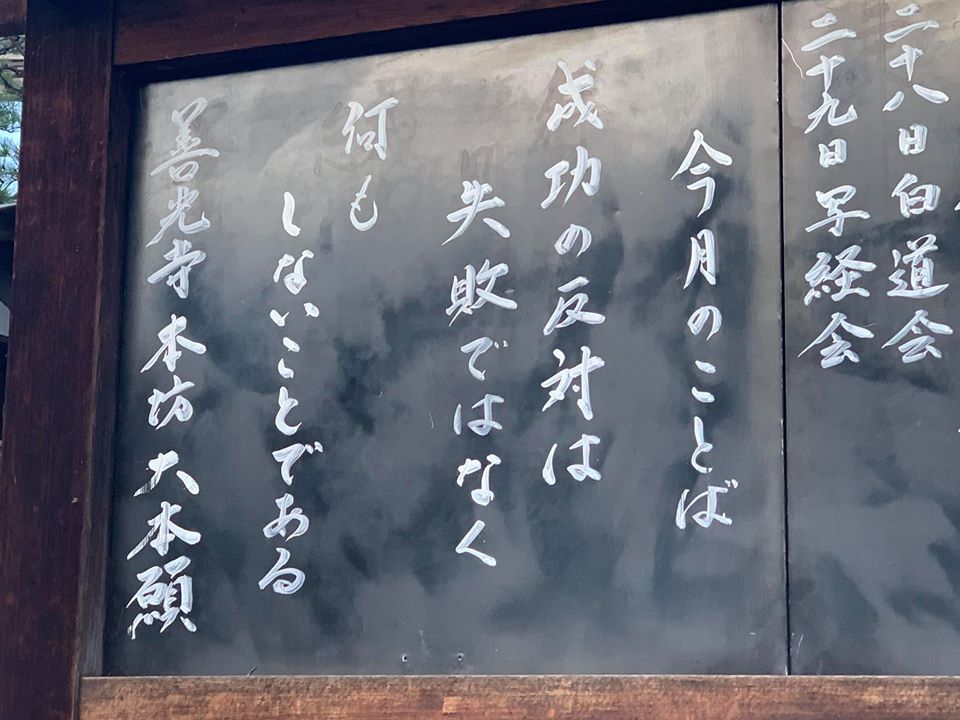 二十八日白道会
二十九日早経会
今月のことば
成功の反対は
失敗ではなく
何も
しないことである
善光寺 本坊 大本願